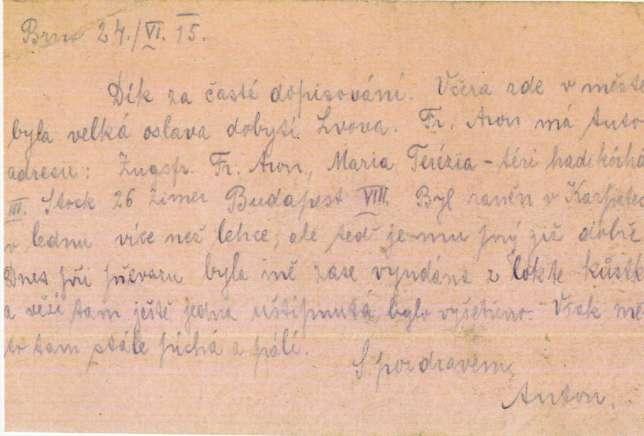 Brno 24./VI. 15.
Dík za časté dopisování. Včera zde v městě
byla velká oslava dobytí Lvova. Fr. Aron má tuto
adresu: Zugsfr. Fr. Aron, Maria Terézia-téri hadikórhá
III. Stock 26 Zimer Budapest VIII. Byl raněn v Karpatec
v lednu více než lehce, ale teď je mu prý již dobře.
Dnes při převazu byla mě zase vyndána z lokte kůstk
a vězí tam ještě jedna uštípnutá, bylo vyšetřeno. Však mě
to tam stále píchá a pálí.
S pozdravem,
Anton.